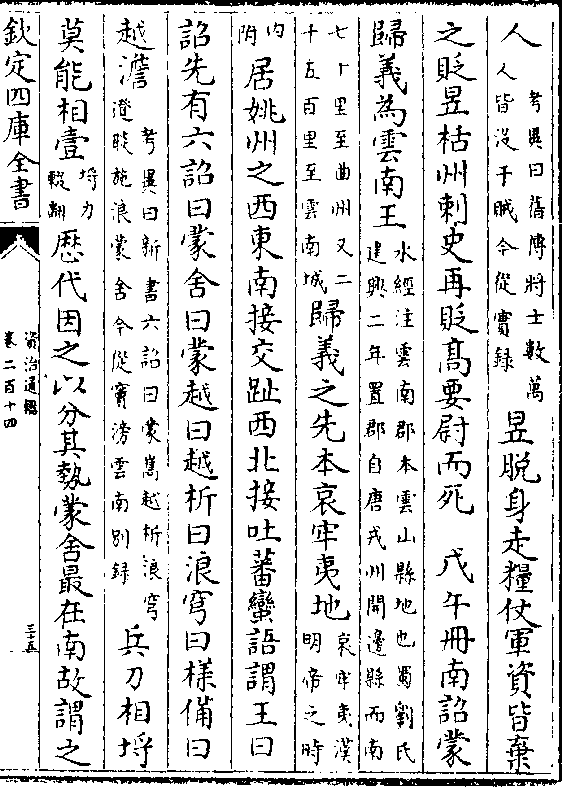 人考異曰舊傳將士數萬人皆沒于賊今從實録昱脱身走糧仗軍資皆棄
之貶昱枯州刺史再貶髙要尉而死 戊午冊南詔蒙
歸義為雲南王水經注雲南郡本雲山縣地也蜀劉氏建興二年置郡自唐戎州開邊縣而南
七十里至曲州又二十五百里至雲南城歸義之先本哀牢夷地哀牢夷漢明帝之時
内附居姚州之西東南接交趾西北接吐蕃蠻語謂王曰
詔先有六詔曰蒙舍曰蒙越曰越析曰浪穹曰様備曰
越澹考異曰新書六詔曰蒙嶲越析浪穹澄睒施浪蒙舍今從竇滂雲南别録兵力相埒
莫能相壹埒力輟翻歴代因之以分其埶蒙舍最在南故謂之
欽定四庫全書
資治通鑑
卷二百十四
三十五